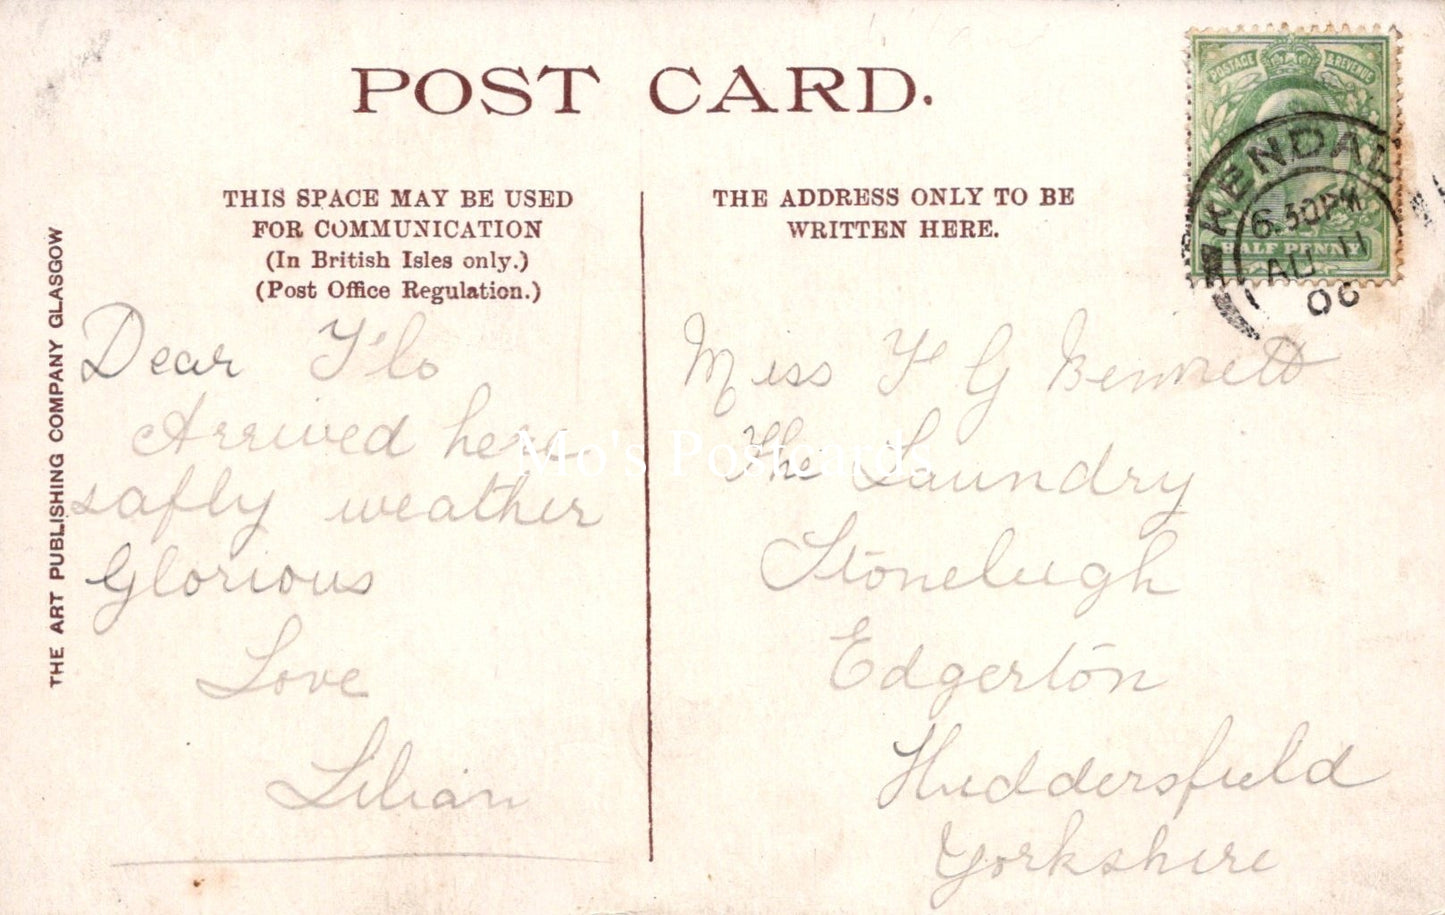 POST CARD.
THIS SPACE MAY BE USED
FOR COMMUNICATION
(In British Isles only.)
(Post Office Regulation.)
THE ADDRESS ONLY TO BE
WRITTEN HERE.
POSTAGE & REVENUE
HALF PENNY
KENDAL
6.30PM
AU 11
06
THE ART PUBLISHING COMPANY GLASGOW
Dear Flo
Arrived here
safly weather
Glorious
Love
Lilian
Miss F G Bennett
The Laundry
Stoneleigh
Edgerton
Huddersfield
Yorkshire
Mo's Postcards